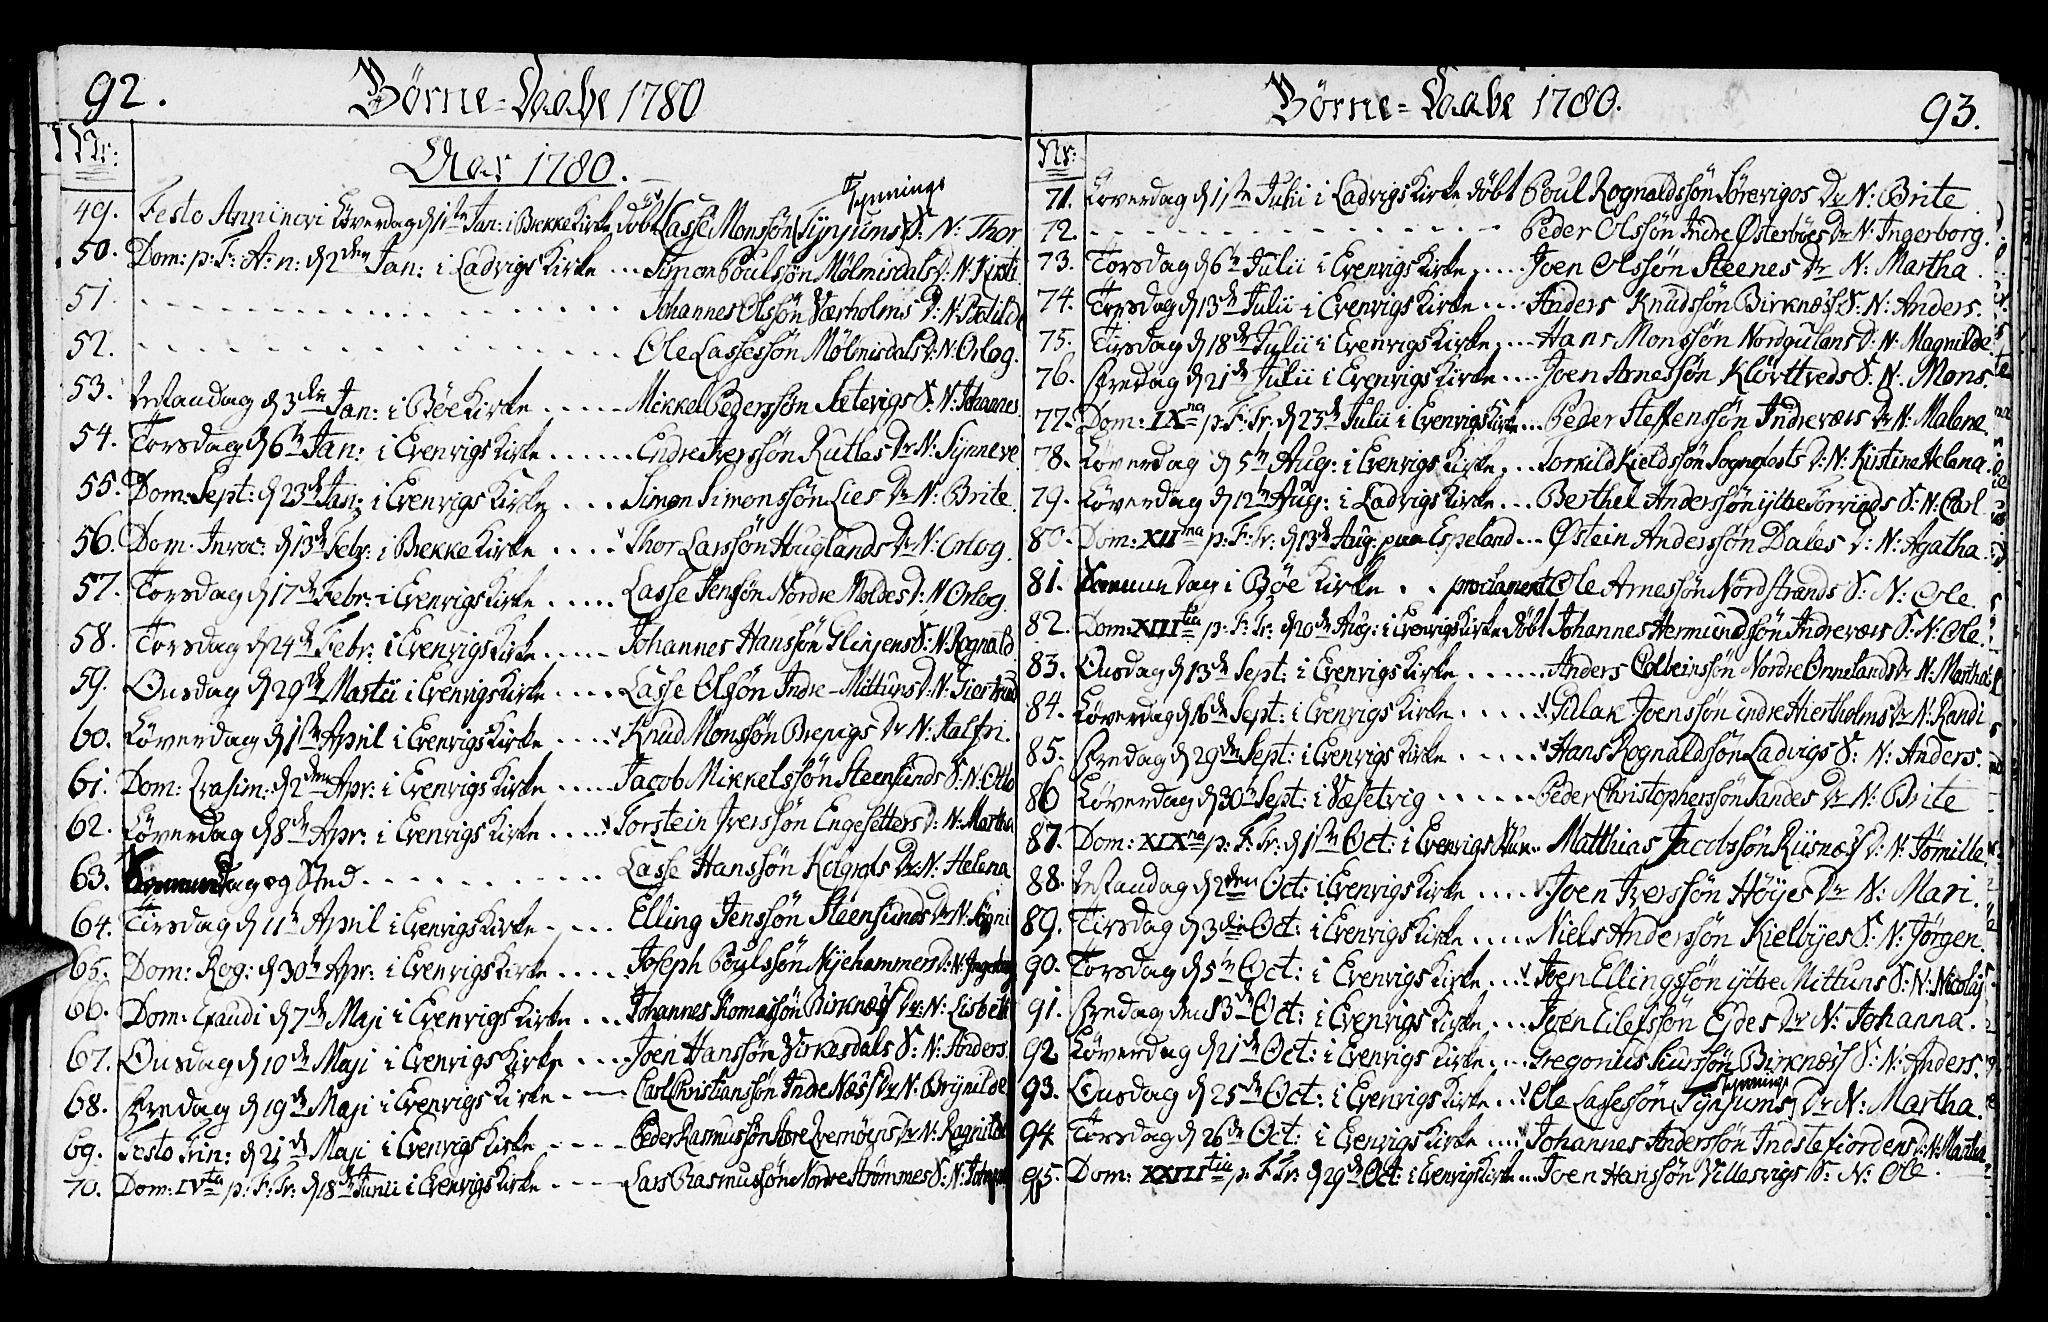 92.
Börne-Daabe 1780
Nr:
Aar 1780.
Tynnings
49. Festo Anni novi Löverdag d 1ste Jan: i Brekke Kirke döbt Lasse Monssön (Tynjums) S. N: Thor
50. Dom: p: F: A: n: d 2den Jan: i Ladvigs Kirke ... Simon Poulssön Mölmisdals D: N: Kirsti
51 - - - Johannes Olssön Værholms D: N: Bolilde
52. - - - Ole Lassessön Mölmisdals D: N: Orlog.
53. Mandag d 3die Jan: i Böe Kirke - - - Mikkel Pederssön Sætevigs S: N: Johannes.
54. Torsdag d 6te Jan: i Evenvigs Kirke - - - Endre Iverssön Rutles Dr N: Synneve
55. Dom: Sept: d 23de Jan: i Evenvigs Kirke .... Simon Simonssön Lies Dr N: Brite.
56. Dom. Invoc: d 13de Febr: i Brekke Kirke .... Thor Larssön Houglands Dr N: Orlog.
57. Torsdag d 17de Febr: i Evenvigs Kirke ..... Lasse Jenssön Nordre Moldes D: N Orlog.
58. Torsdag d 24de Febr: i Evenvigs Kirke .... Johannes Hanssön Glinjens S: N: Rognald
59. Onsdag d 29de Martii i Evenvigs Kirke .... Lasse Olssön Indre-Mittuns D: N: Giertrud
60. Löverdag d 1ste April i Evenvigs Kirke .... Knud Monssön Brevigs Dr N: Aalfri.
61. Dom: Qvasim: d 2den Apr: i Evenvigs Kirke ..... Jacob Mikkelssön Steensunds S: N: Otto
62. Löverdag d 8de Apr: i Evenvigs Kirke .... Torstein Iverssön Engesetters D: N: Martha
63. Sammedag og Sted - - - Lasse Hanssön Dr: N: Helena
64. Tirsdag d 11te April i Evenvigs Kirke - - - Elling Jenssön Steensunds Dr N: Sögni
65. Dom: Rog: d 30te Apr: i Evenvigs Kirke .... Joseph Poulssön Nyehammers D: N: Ingeborg
66. Dom: Exaudi d 7de Maji i Evenvigs Kirke ... Johannes Tomassön Birknæss Dr: N: Lisbeth
67. Onsdag d 10de Maji i Evenvigs Kirke ... Joen Hanssön Virkesdals S: N: Anders.
68. Fredag d 19de Maji i Evenvigs Kirke - - - Carl Christianssön Indre Næss Dr N: Brynilde
69. Festo Trin: d 21de Maji i Evenvigs Kirke - - - Peder Rasmussön Dr N: Ragnilde
70. Dom: IVta p: F: Tr: d 18de Junii i Evenvigs Kirke - - - Lars Rasmussön Nordre Strömmes S: N:
Börne-Daabe 1780.
93.
Nr:
71. Löverdag d 1ste Julii i Ladvigs Kirke döbt Poul Rognaldssön Sörevigos Dr N: Brite
72. - - - Peder Olssön Indre Østerböes Dr N: Ingerborg.
73. Torsdag d 6te Julii i Evenvigs Kirke .... Joen Olssön Steenes Dr N: Martha.
74. Torsdag d 13de Julii i Evenvigs Kirke ... Anders Knudssön Birknæss S: N: Anders.
75. Tirsdag d 18de Julii i Evenvigs Kirke .... Hans Monssön Nordgulans D: N: Magnilde
76. Fredag d 21de Julii i Evenvigs Kirke .... Joen Arnessön Klörttveds S: N: Mons.
77. Dom: IXna p: F: Tr: d 23de Julii i Evenvigs Kirke ... Peder Steffenssön Indreværs Dr N: Malene.
78. Löverdag d 5te Aug: i Evenvigs Kirke .... Torkild Kieldssön Sognefosts D: N: Kirstine Helena.
79. Löverdag d 12te Aug: i Ladvigs Kirke ... Berthel Anderssön ytbe Torvigds S: N: Carl.
80. Dom: XIIma p: F: Tr: d 13de Aug: paa Espeland ... Østein Anderssön Dales D: N: Agatha.
81. Sammedag i Böe Kirke . . proclament Ole Arnessön Nordstrands S: N: Ole.
82. Dom: XIIItia p: F: Tr: d 20de Aug: i Evenvigs Kirke döbt Johannes Hermundssön Indreværs S: N: Ole.
83. Onsdag d 13de Sept: i Evenvigs Kirke ..... Anders Colbeinssön Nordre Ønnelands Dr N: Martha
84. Löverdag d 16de Sept: i Evenvigs Kirke .... Aslak Joenssön indre Hiertholms Dr N: Randi
85. Fredag d 29de Sept: i Evenvigs Kirke .... Hans Rognaldssön Ladvigs S: N: Anders.
86 Löverdag d 30te Sept: i Væsetvig ..... Peder Christopherssön Sandes Dr N: Brite
87. Dom: XIXna p: F: Tr: d 1ste Oct: i Evenvigs Kirke .. Matthias Jacobssön Riisnæss D: N: Jömille
88. Mandag d 2den Oct: i Evenvigs Kirke .... Joen Iverssön Höyes Dr N: Mari.
89. Tirsdag d 3die Oct: i Evenvigs Kirke .... Niels Anderssön Kielbyes S: N: Jörgen.
90. Torsdag d 5te Oct: i Evenvigs Kirke ... Joen Ellingssön ytre Mittuns S: N: Nicolaj
91. Fredag den 13de Oct: i Evenvigs Kirke ... Joen Eilefssön Eides Dr N: Johanna.
92. Löverdag d 21de Oct: i Evenvigs Kirke ... Gregorius Siurssön Birknæss S: N: Anders.
Tynnings
93. Onsdag d 25de Oct: i Evenvigs Kirke ... Ole Lassessön (Tynjums) Dr N: Martha.
94 Torsdag d 26de Oct: i Evenvigs Kirke .... Johannes Anderssön Indstefiordens D: N: Martha
95. Dom: XXIIItia p: F: Tr: d 29de Oct: i Evenvigs Kirke ... Joen Hanssön Villesvigs S: N: Ole.